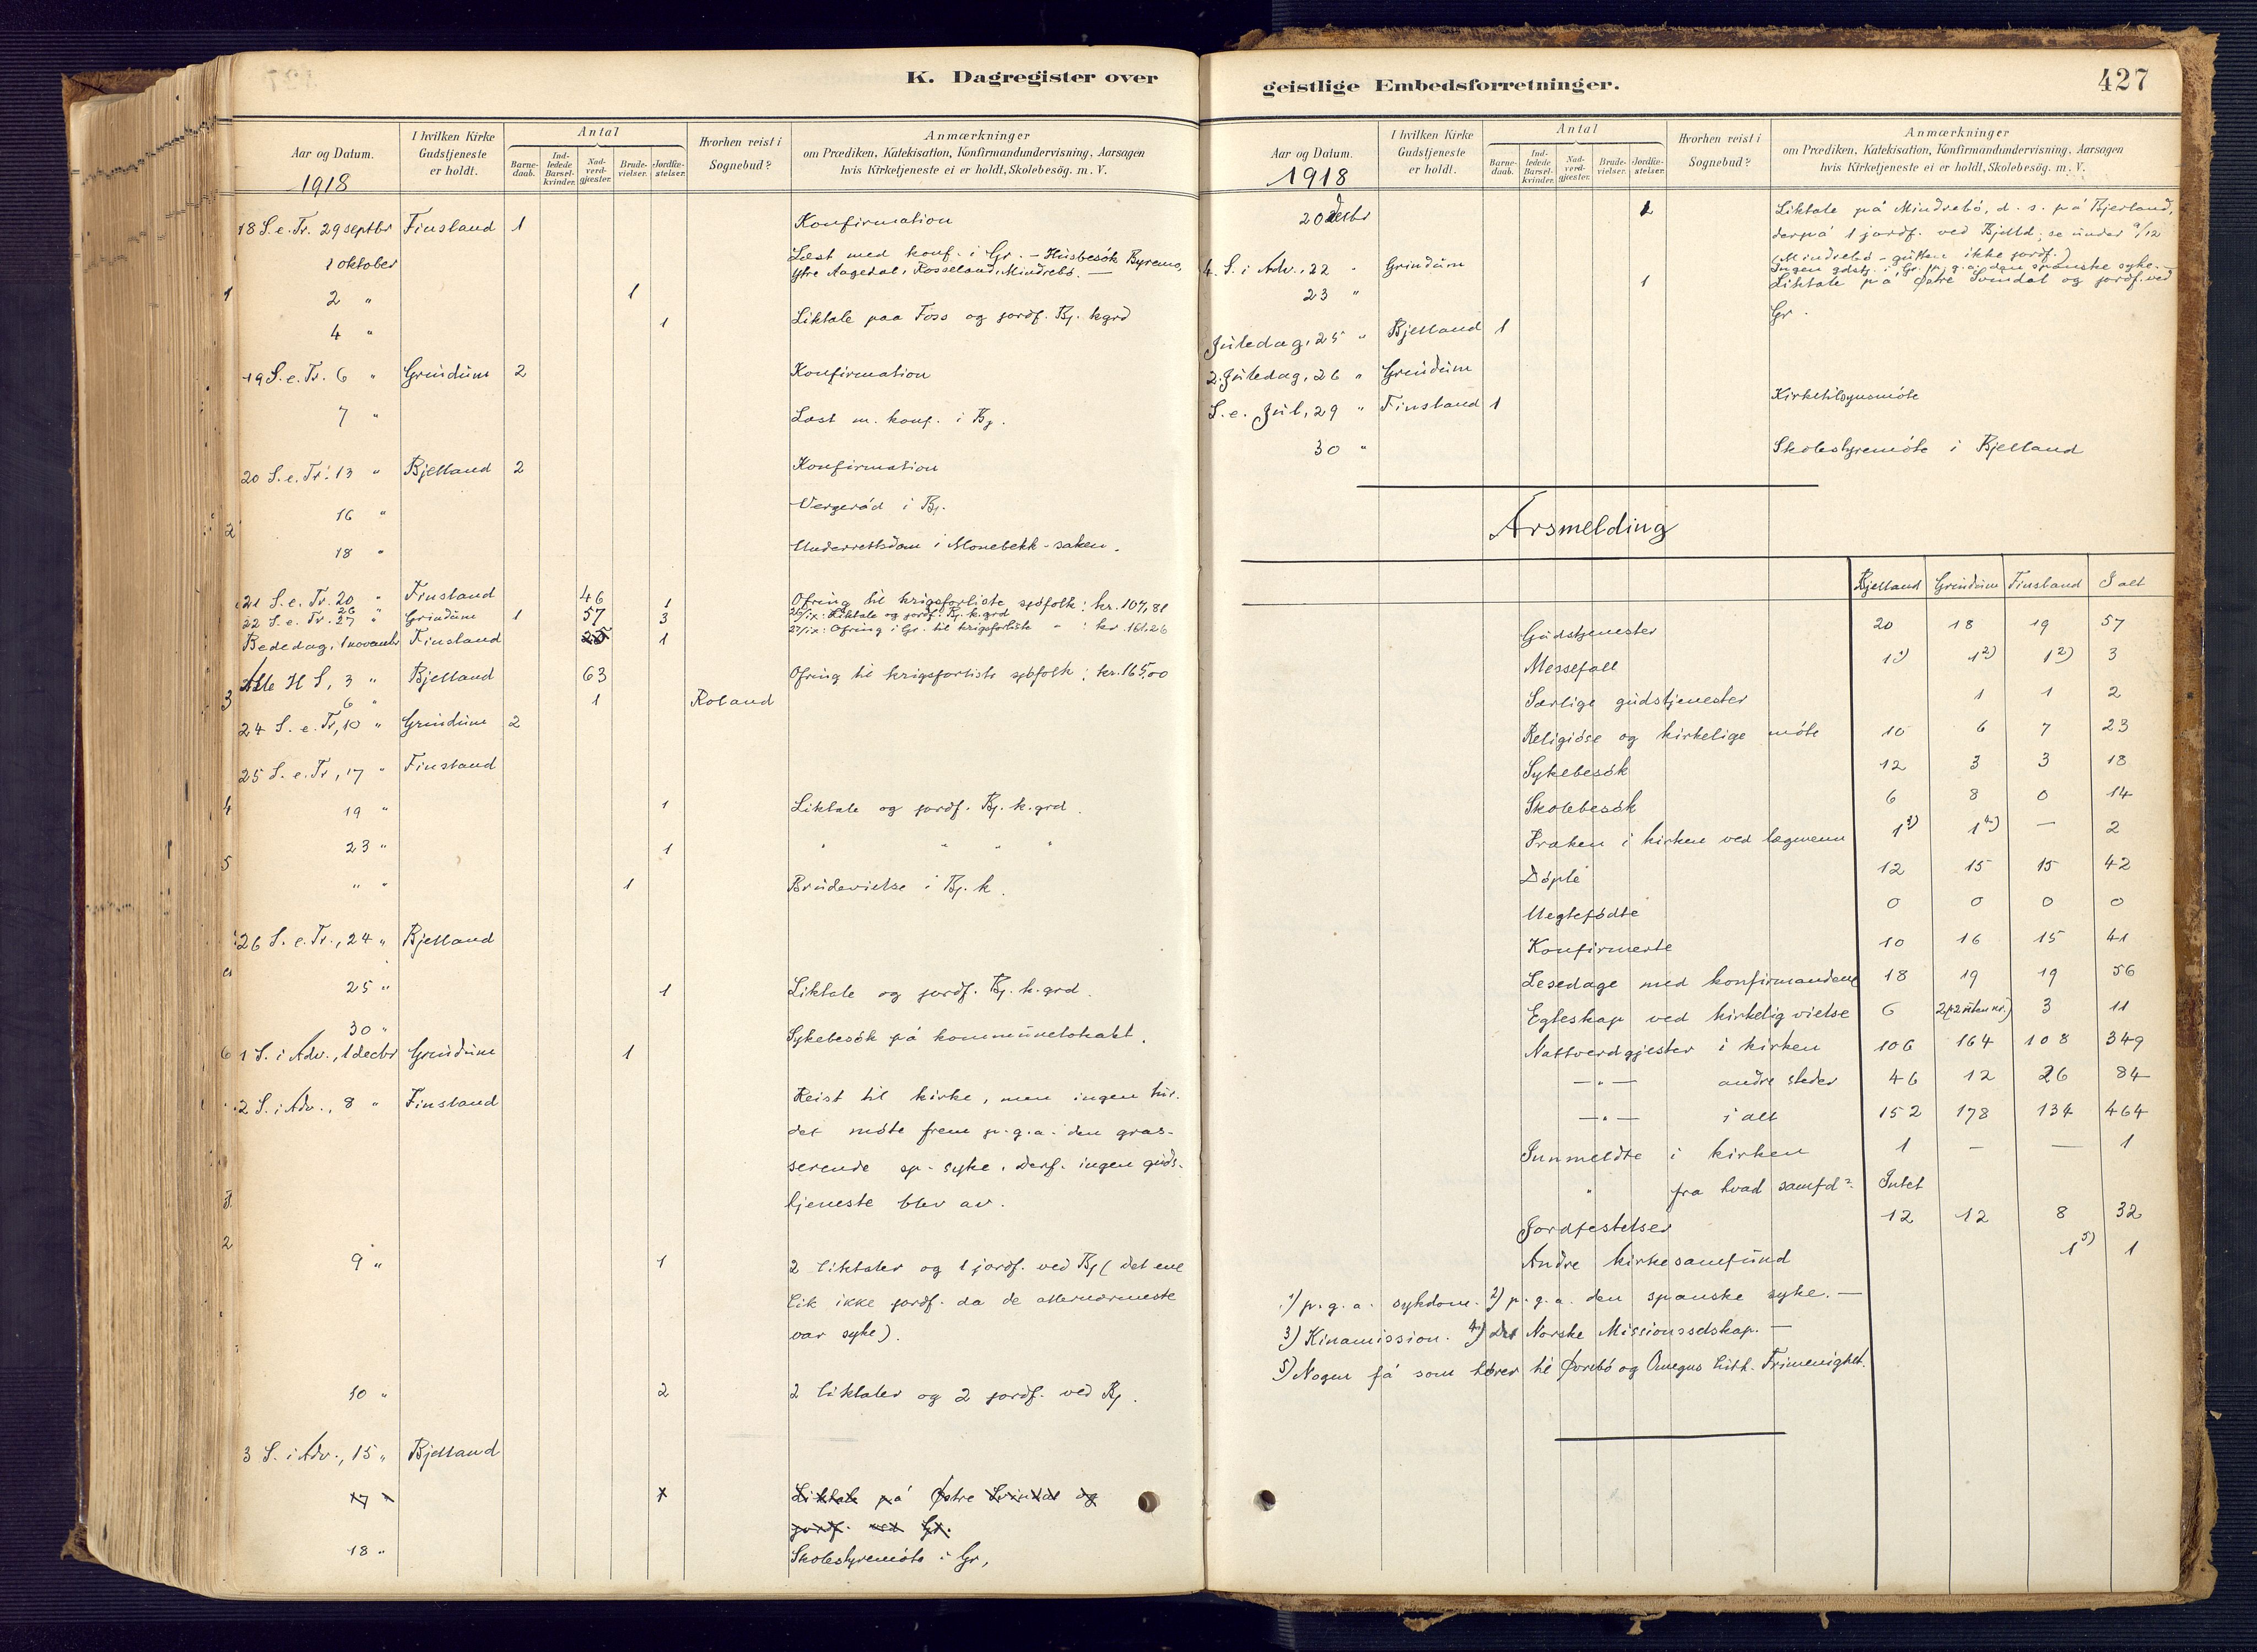 K. Dagregister over
Aar og Datum.
1918
I hvilken Kirke Gudstjeneste er holdt.
Antal
Barne-daab.
Ind-ledede Barsel-kvinder.
Nad-verd-gjæster.
Brude-vielser.
Jordfæ-stelser.
Hvorhen reist i Sognebud?
Anmærkninger
om Prædiken, Katekisation, Konfirmandundervisning, Aarsagen
hvis Kirketjeneste ei er holdt, Skolebesög. m. V.
18 S. e. Tr. 29 septbr Finsland 1 Konfirmation
1 oktober Læst med konf. i Gr. - Husbesök Byremo,
Ytre Aagedal, Rosseland, Mindrebö. —
2 " 1
4 " 1 Liktale paa Foss og jordf. Bj. kgrd
19 S. e. Tr. 6 " Grindum 2 Konfirmation
7 " Læst m. konf. i Bj.
20 S. e. Tr. 13 " Bjelland 2 Konfirmation
16 " Vergeråd i Bj.
18 " Underrettsdom i Monebekk-saken.
21 S. e. Tr. 20 " Finsland 46 1 Ofring til krigsforliste sjöfolk: kr. 107,81
26 "
22 S. e. Tr. 27 " Grindum 1 57 3 26/ix: Liktale og jordf. Bj. k.grd
27/ix: Ofring i Gr. til krigsforliste " : kr. 161,26
Bededag, 1 novembr Finsland 25 1
Alle H S, 3 " Bjelland 63 Ofring til krigsforliste sjöfolk: kr. 165,00
6 " 1 Roland
24 S. e. Tr, 10 " Grindum 2
25 S. e. Tr, 17 " Finsland
19 " 1 Liktale og jordf. Bj. k.grd.
23 " 1 " " " "
" " 1 Brudevielse i Bj. k.
26 S. e. Tr., 24 " Bjelland
25 " 1 Liktale og jordf. Bj. k.grd.
30 " Sykebesök på kommunelokalet.
1 S. i Adv., 1 decbr Grindum 1
2 S. i Adv., 8 " Finsland Reist til kirke, men ingen tur-
det möte frem p.g.a. den gras-
serende sp. syke. Derf. ingen guds-
tjeneste blev av.
9 " 1 2 liktaler og 1 jordf. ved Bj (det ene
lik ikke jordf. da de allernærmeste
var syke).
10 " 2 2 liktaler og 2 jordf. ved Bj.
3 S. i Adv., 15 " Bjelland
17 " 1 Liktale på Østre Svindal og
jordf. ved Gr.
18 " Skolestyremöte i Gr,
geistlige Embedsforretninger.
427
Aar og Datum.
1918
I hvilken Kirke Gudstjeneste er holdt.
Antal
Barne-daab.
Ind-ledede Barsel-kvinder.
Nad-verd-gjæster.
Brude-vielser.
Jordfæ-stelser.
Hvorhen reist i Sognebud?
Anmærkninger
om Prædiken, Katekisation, Konfirmandundervisning, Aarsagen
hvis Kirketjeneste ei er holdt, Skolebesög. m. V.
20 decbr 1 Liktale på Mindrebö, d. s. på Bjerland,
derpå 1 jordf. ved Bjelld; se under 9/12
(Mindrebö-gutten ikke jordf.)
4. S. i Adv., 22 " Grindum Ingen gdstj. i Gr. p.g.a. den spanske syke.
23 " 1 Liktale på Østre Svindal og jordf. ved
Gr.
Juledag, 25 " Bjelland 1
2. Juledag, 26 " Grindum
S. e. Jul, 29 " Finsland 1 Kirketilsynsmöte
30 " Skolestyremöte i Bjelland
Årsmelding
Bjelland Grindum Finsland I alt
Gudstjenester 20 18 19 57
Messefall 1 1) 1 2) 1 2) 3
Særlige gudstjenester 1 1 2
Religiöse og kirkelige möte 10 6 7 23
Sykebesök 12 3 3 18
Skolebesök 6 8 0 14
Præken i kirken ved lægmenn 1 3) 1 4) — 2
Döpte 12 15 15 42
Uegtefödte 0 0 0 0
Konfirmerte 10 16 15 41
Lesedage med konfirmandene 18 19 19 56
Egteskap ved kirkelig vielse 6 2 3 11
Nattverdgjester i kirken 106 164 108 349
—"— andre steder 46 12 26 84
—"— i alt 152 178 134 464
Innmeldte i kirken 1 — — 1
" fra hvad samfd? Intet
Jordfestelser 12 12 8 32
Andre kirkesamfund 1 5) 1
1) p.g.a. sykdom. 2) p.g.a. den spanske syke. —
3) Kinamission. 4) Det Norske Missionsselskap. —
5) Nogen få som hörer til Øvrebö og Omegns luth. Frimenighet.